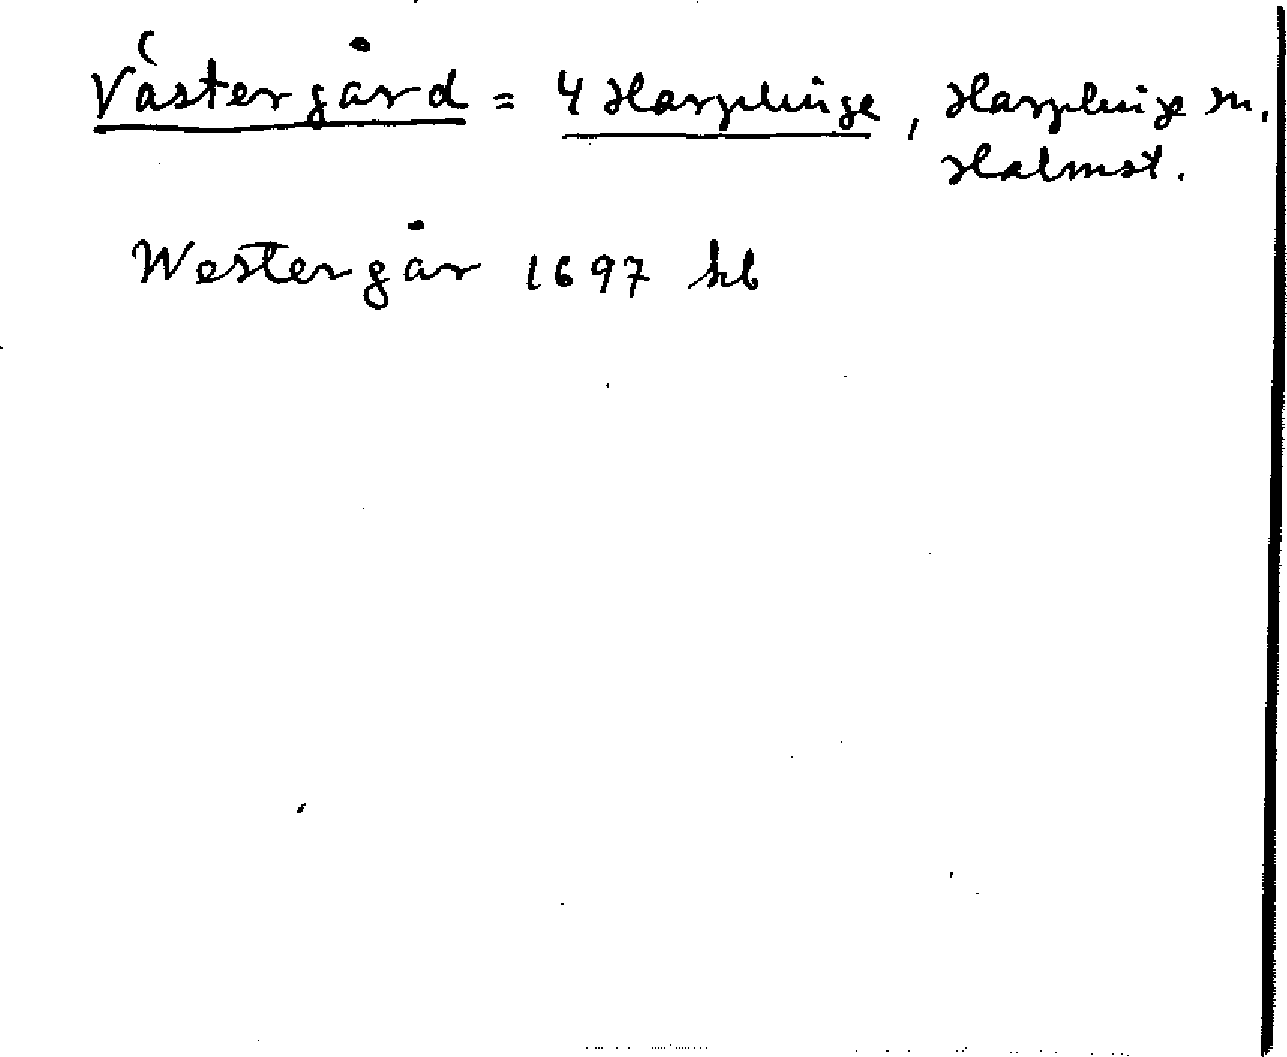 Västergård = 4 Harplinge, Harplinge sn.
Halmst.
Westergår 1697 hb